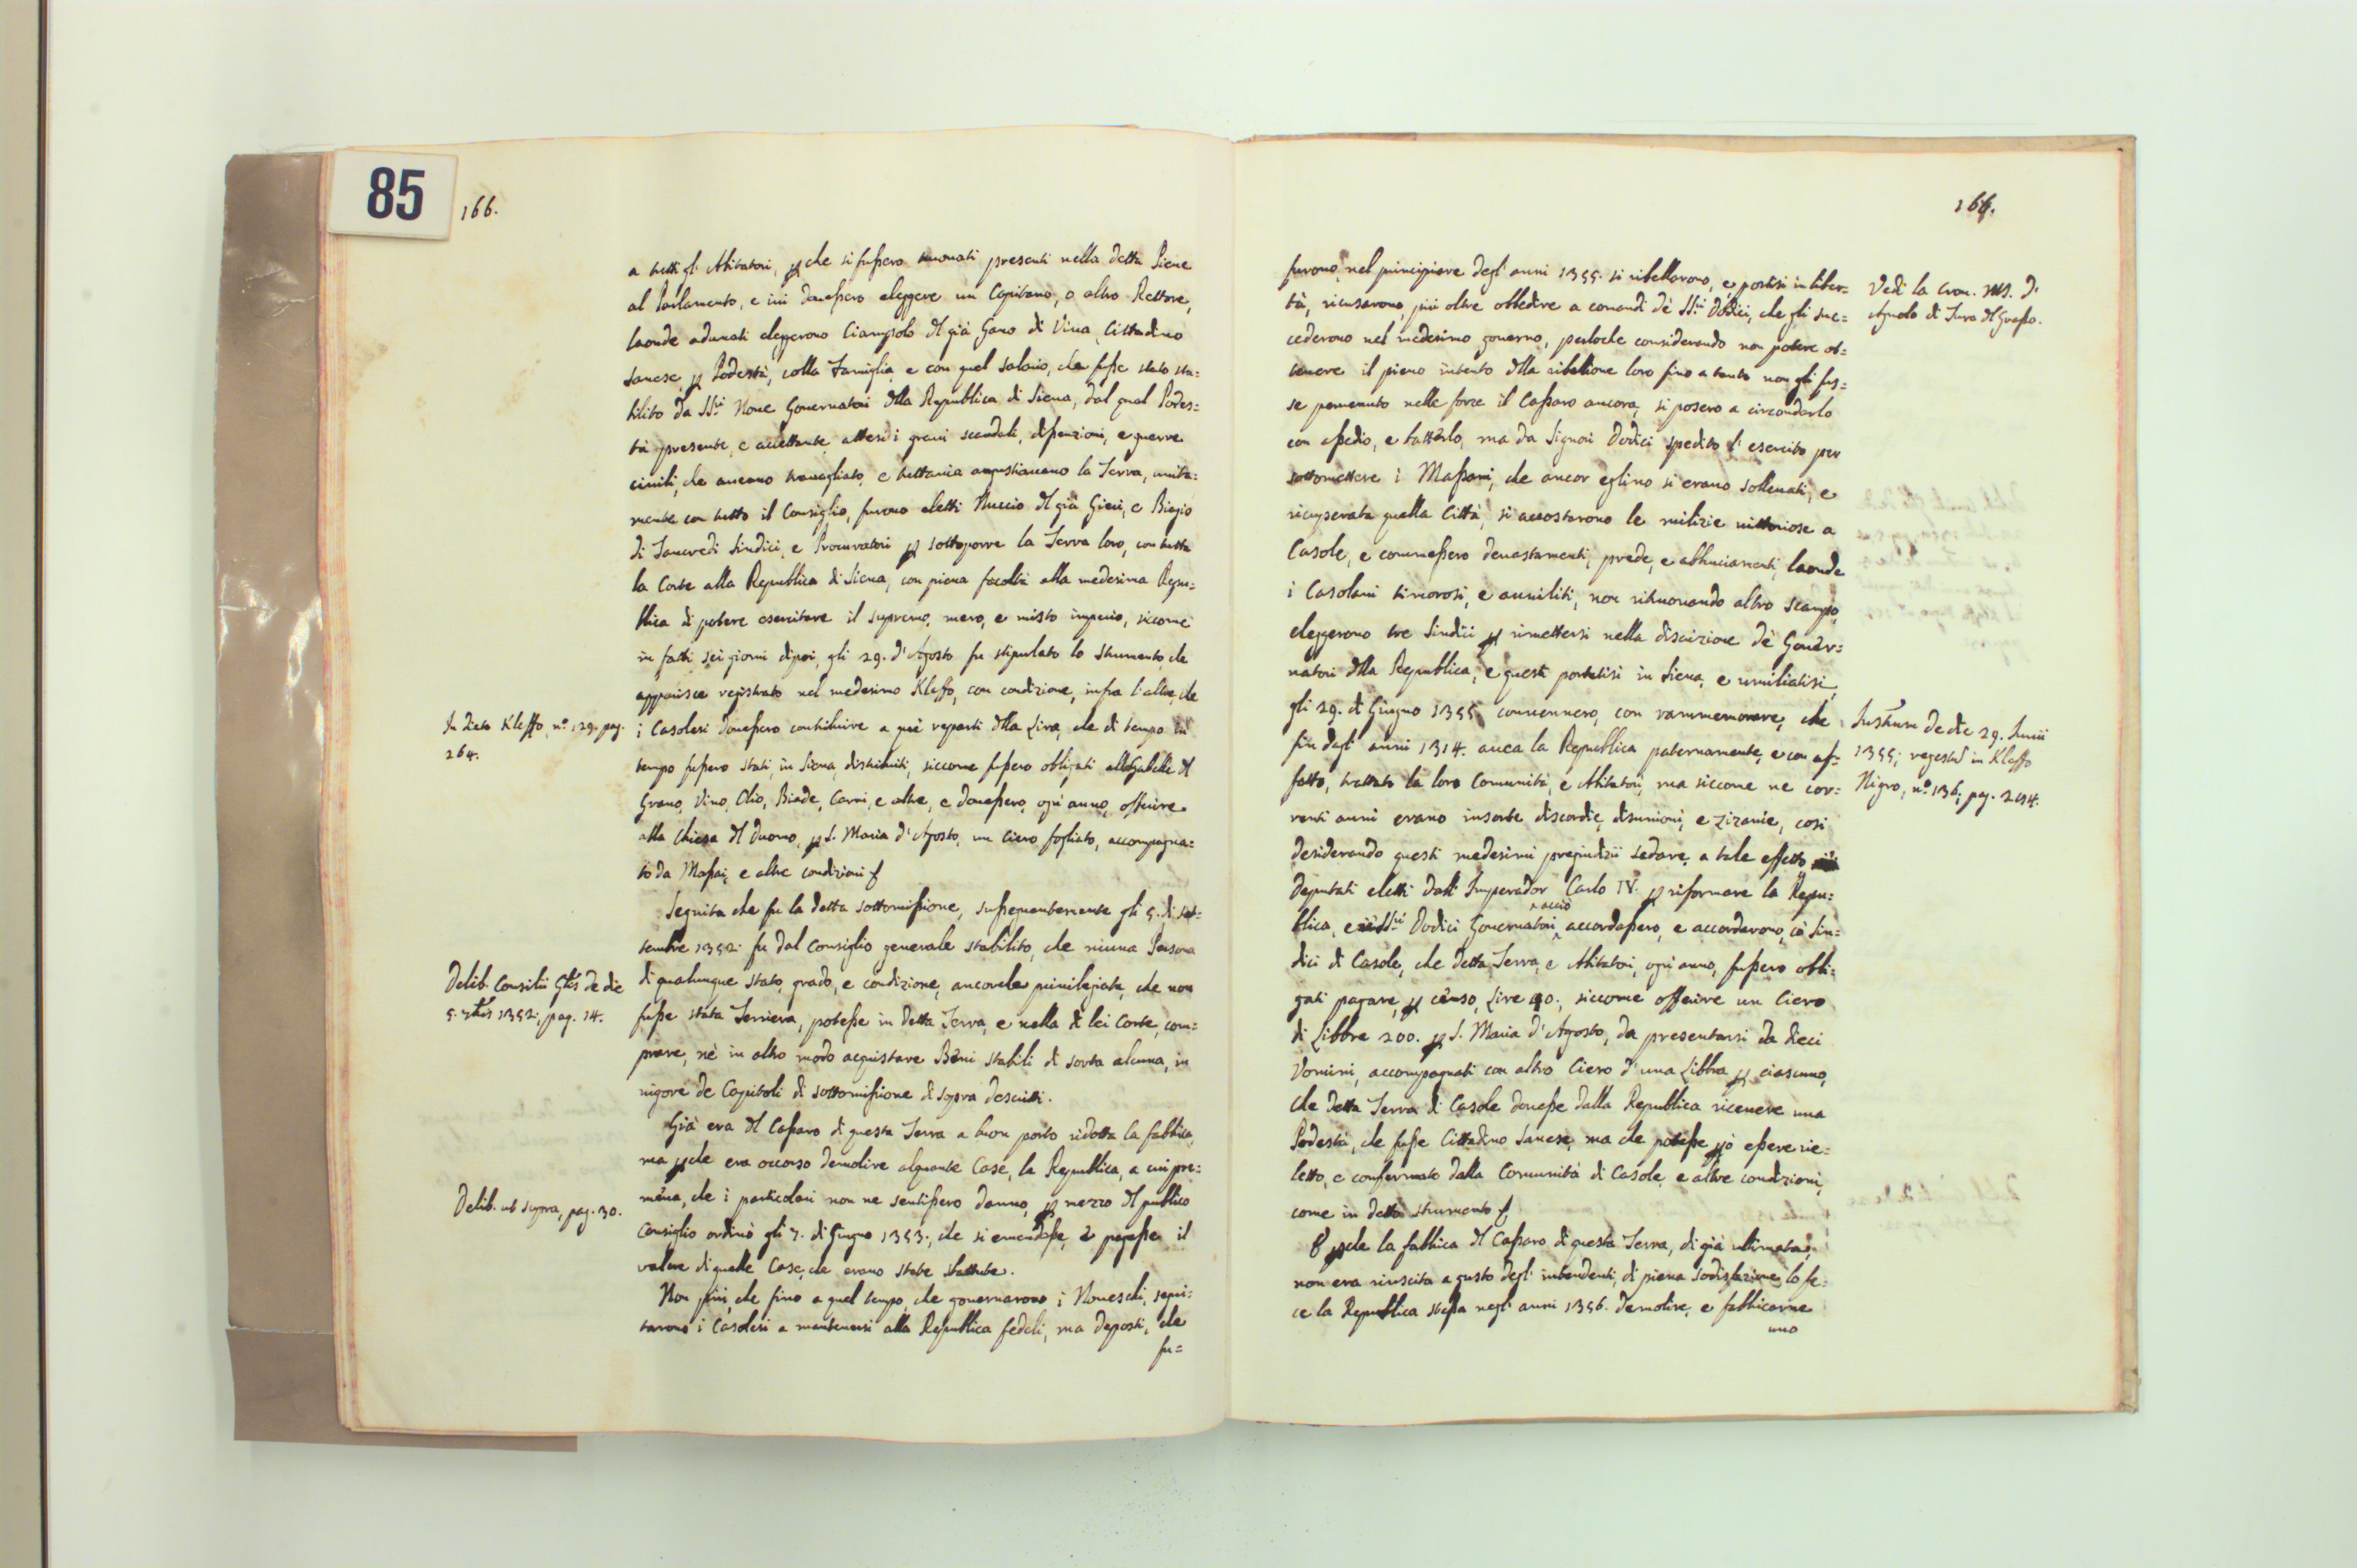 85
166.
a tutti gl' Abitatori, p che si fussero trovati presenti nella detta Pieve
al Parlamento, e ivi dovessero eleggere un Capitano, o altro Rettore,
laonde adunati elessero Ciampolo del già Gano di Vina, Cittadino
Sanese, p Podestà, colla Famiglia, e con quel salario, che fusse stato sta=
bilito da SS.ri Nove Governatori della Republica di Siena, dal qual Podes=
tà presente, e accettante, attesi i gravi scandali, dissenzioni, e guerre
civili, che aveano travagliato, e tuttavia angustiavano la Terra, unita=
mente con tutto il Consiglio, furono eletti Nuccio del già Gieri, e Biagio
di Tancredi Sindici, e Procuratori p sottoporre la Terra loro, con tutta
la Corte alla Republica di Siena, con piena facoltà alla medesima Repu=
blica di potere esercitare il supremo, mero, e misto imperio, siccome
in fatti sei giorni dipoi, gli 29. d'Agosto fu stipulato lo strumento, che
apparisce registrato nel medesimo Kleffo, con condizione, infra l'altre, che
In dicto Kleffo, n.o 129. pag.
264.
i Casolesi dovessero contribuire a què reparti della Lira, che di tempo in
tempo fussero stati, in Siena, distribuiti, siccome fussero obligati alle Gabelle del
Grano, Vino, Olio, Biade, Carni, e altre, e dovessero, ogni anno, offerire
alla Chiesa del Duomo, p S. Maria d'Agosto, un Ciero fogliato, accompagna=
to da Massai, e altre condizioni
Seguita che fu la detta sottomissione, susseguentemente gli 5. di Set=
tembre 1352. fu dal Consiglio generale stabilito, che niuna Persona
Delib. Consilii Glis de die
5. 7bris 1352., pag. 14.
di qualunque stato, grado, e condizione, ancorche privilegiata, che non
fusse stata Terriera, potesse in detta Terra, e nella di lei Corte, com=
prare, nè in altro modo acquistare Beni stabili di sorta alcuna, in
vigore de Capitoli di sottomissione di sopra descritti.
Già era del Cassaro di questa Terra a buon porto ridotta la fabbrica,
ma p che era occorso demolire alquante Case, la Republica, a cui pre=
Delib. ut supra, pag. 30.
meva, che i particolari non ne sentissero danno, p mezzo del publico
Consiglio ordinò gli 7. di Giugno 1353., che si emendasse, e pagasse il
valore di quelle Case, che erano state
Non più, che fino a quel tempo, che governarono i Noveschi, segui=
tarono i Casolesi a mantenersi alla Republica fedeli, ma deposti, che
fu=
furono, nel principiare degl' anni 1355. si ribellarono, e postisi in liber=
Vedi la Cron. MS. d'
Agnolo di Tura del Grasso.
tà, ricusarono, più oltre obbedire a comandi dè SS.ri Dodici, che gli suc=
cederono nel medesimo governo, perloche considerando non potere ot=
tenere il pieno intento della ribellione loro fino a tanto non gli fus=
se pervenuto nelle forze il Cassaro ancora, si posero a circondarlo
con assedio, e batterlo, ma da Signori Dodici spedito l'esercito per
sottomettere i Massani, che ancor eglino si erano sollevati, e
ricuperata quella Città, si accostarono le milizie vittoriose a
Casole, e commessero devastamenti, prede, e abbruciamenti, laonde
i Casolani timorosi, e avviliti, non ritrovando altro scampo,
elessero tre Sindici p rimettersi nella discrizione dè Gover=
natori della Republica, e questi portatisi in Siena, e umiliatisi,
gli 29. di Giugno 1355. convennero, con rammemorare, che
Instrum de die 29. Junii
1355; regestr in Kleffo
Nigro, n.o 136, pag. 244.
fin degl' anni 1314. avea la Republica paternamente, e con af=
fetto, trattato la loro Comunità, e Abitatori, ma siccome ne cor=
renti anni erano insorte discordie, disunioni, e zizanie, così
desiderando questi medesimi pregiudizii sedare, a tale effetto
deputati eletti dall' Imperador Carlo IV. p riformare la Repu=
blica, e Dodici Governatori acciò accordassero, e accordarono, cò Sin=
dici di Casole, che detta Terra, e Abitatori, ogni anno, fussero obli=
gati pagare, p censo, Lire 40., siccome offerire un Ciero
di Libbre 200. p S. Maria d'Agosto, da presentarsi da dieci
Uomini, accompagnati con altro Ciero d'una Libbra p ciascuno,
che detta Terra di Casole dovesse dalla Republica ricevere una
Podestà, che fusse Cittadino Sanese, ma che potesse pò essere rie=
letto, e confermato dalla Comunità di Casole, e altre condizioni,
come in detto strumento
E p che la fabbrica del Cassaro di questa Terra, di già ultimata,
non era riuscita a gusto degl' intendenti, di piena sodisfazione, lo fe=
ce la Republica stessa negl' anni 1356. demolire, e fabbricarne
uno